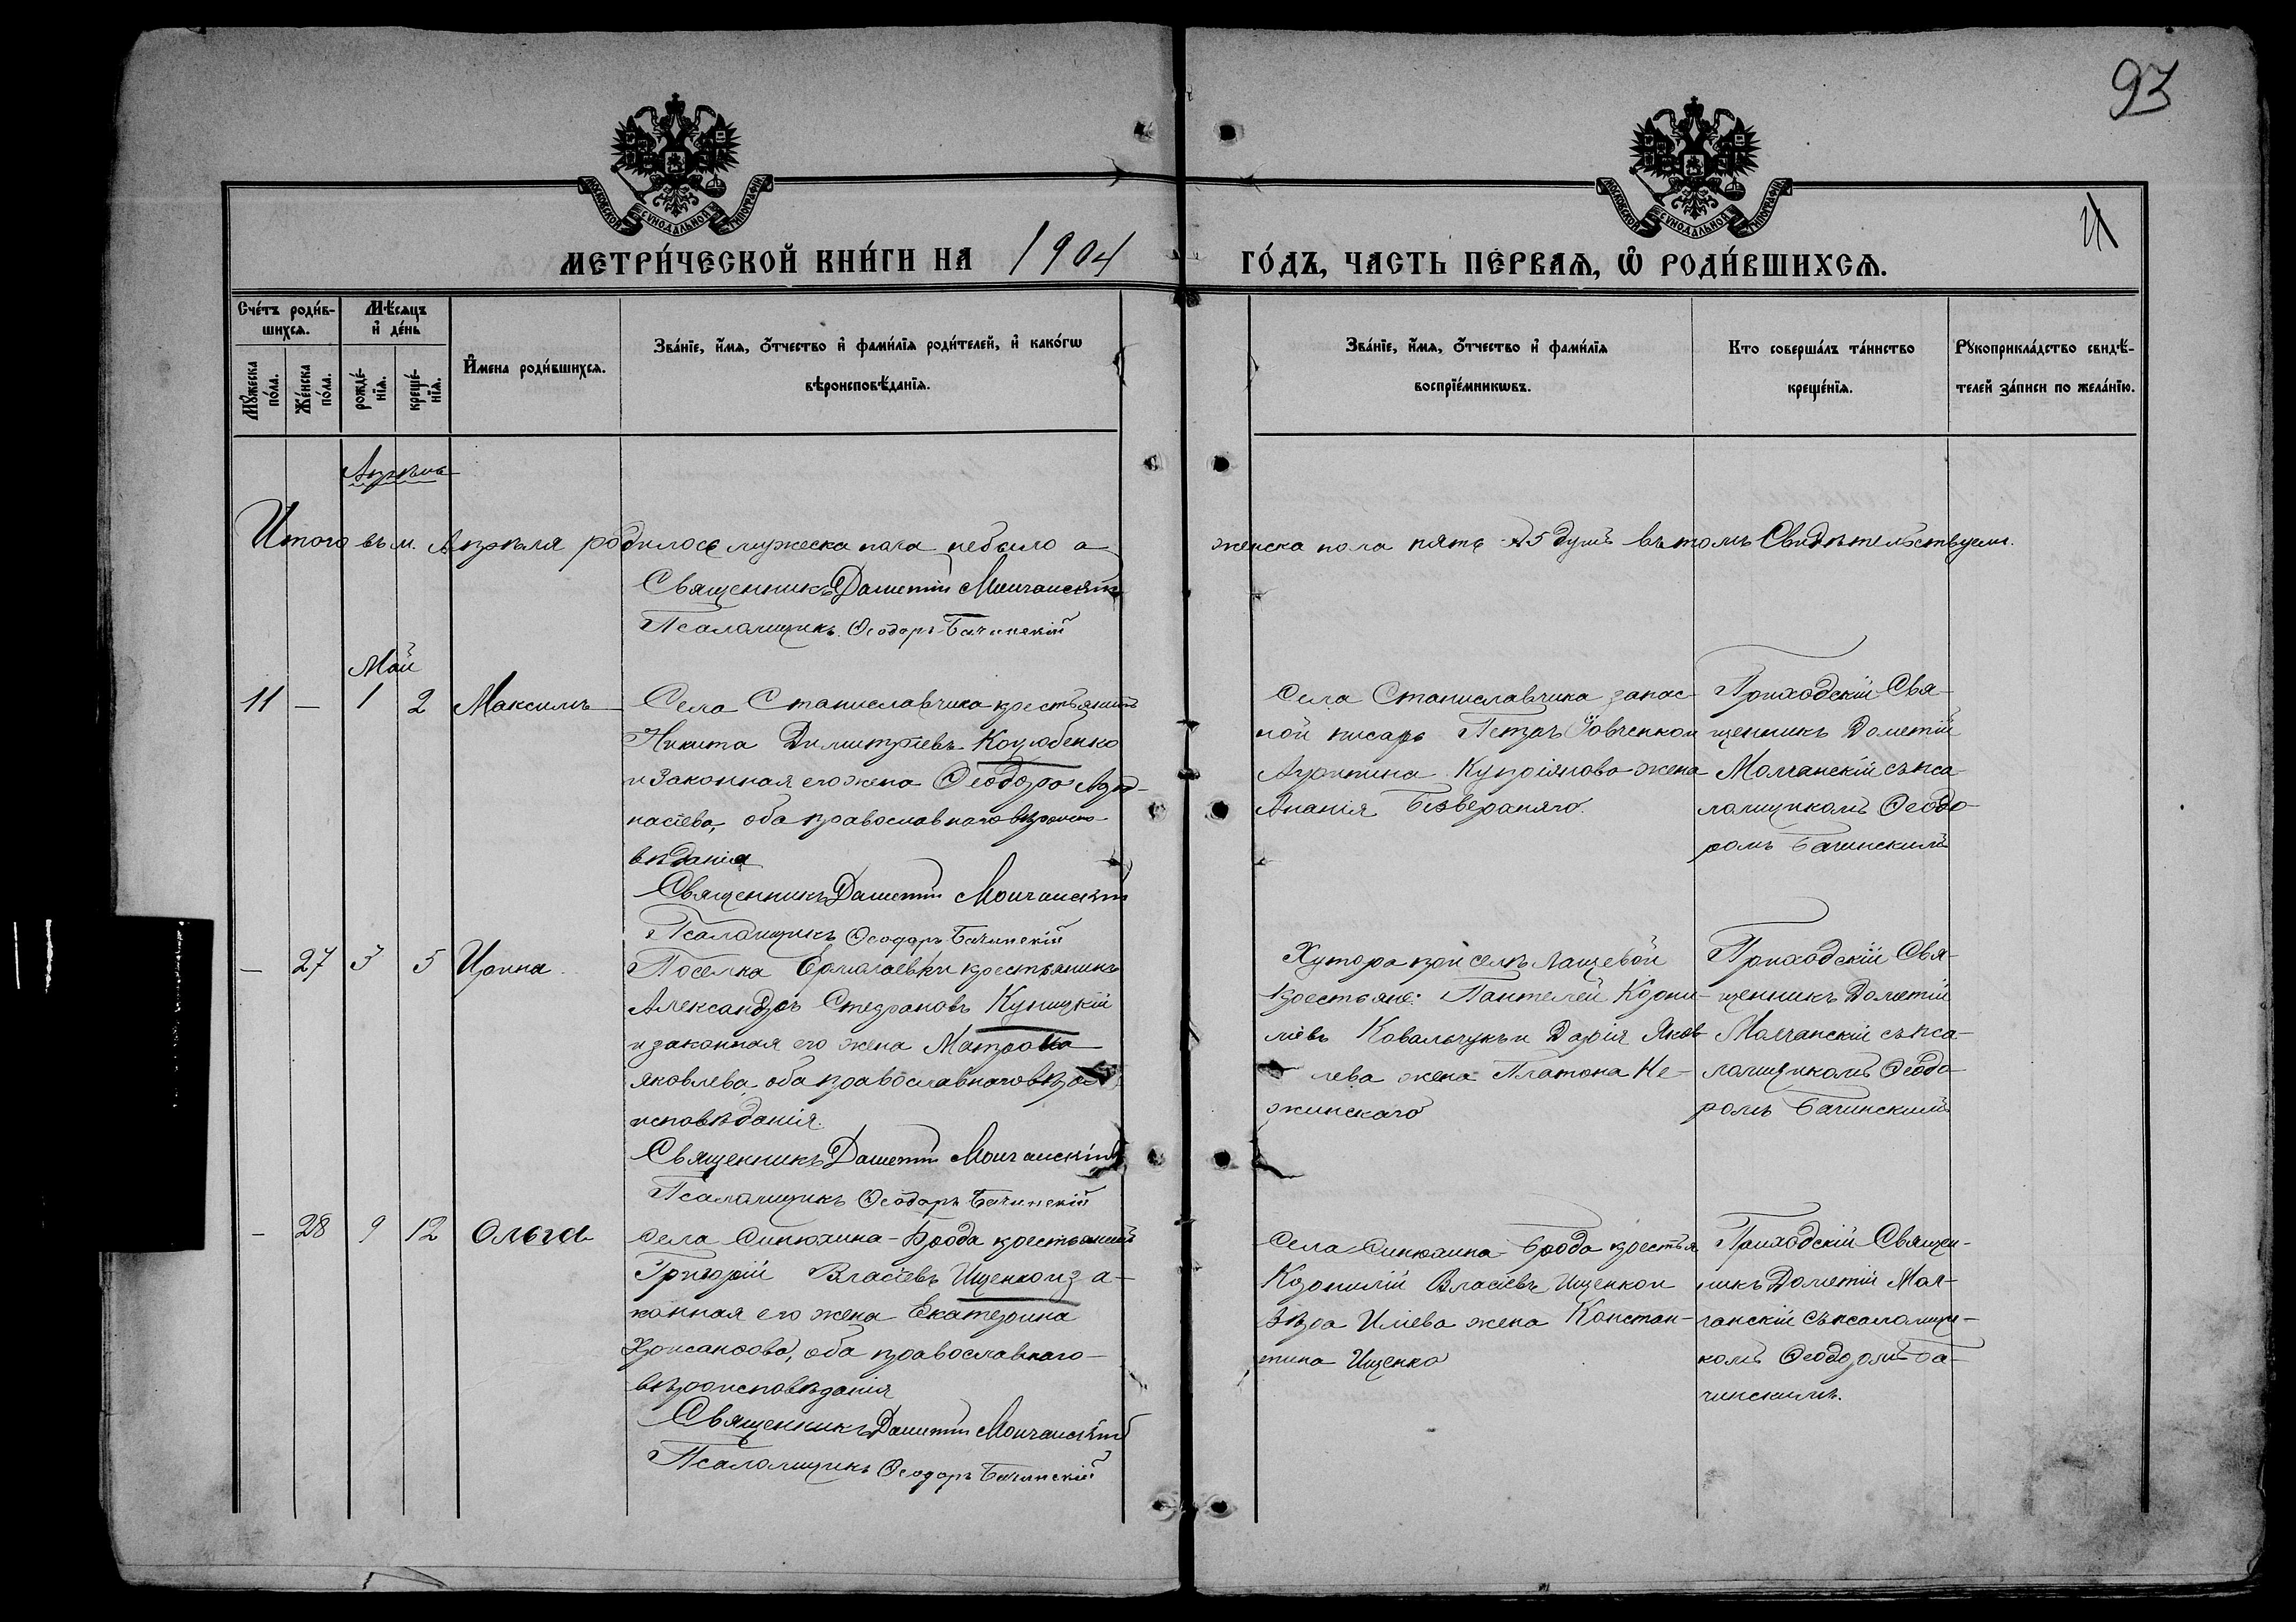 93
4
МОСКОВСКОЙ СѴНОДАЛЬНОЙ ТИПОГРАФІИ.
МОСКОВСКОЙ СѴНОДАЛЬНОЙ ТИПОГРАФІИ.
МЕТРИ́ЧЕСКОЙ КНИ́ГИ НА 1904 ГО́ДЪ, ЧАСТЬ ПЕ́РВАѦ, Ѡ҆ РОДИ́ВШИХСѦ.
Сче́тъ роди́вшихсѧ.
Мꙋ́жеска по́ла.
Же́нска по́ла.
Мѣ́сѧцъ и҆ де́нь
рожде́нїѧ.
креще́нїѧ.
И҆мена роди́вшихсѧ.
Зва́нїе, и҆́мѧ, ѻ҆́тчество и҆ фами́лїѧ роди́телей, и҆ како́гѡ
вѣроисповѣ́данїѧ.
Зва́нїе, и҆́мѧ, ѻ҆́тчество и҆ фами́лїѧ
воспрїе́мникѡвъ.
Кто соверша́лъ та́инство
креще́нїѧ.
Рꙋкоприкла́дство свидѣ́-
телей за́писи по жела́нїю.
Апрѣль
Итого въ м. Апрѣля родилось мужеска пола небыло а женска пола пять 5 душъ въ томъ Свидѣтельствуемъ.
Священникъ Дометій Молчанскій
Псаломщикъ Ѳеодоръ Бачинскій
Май
11 — 1 2 Максимъ
Села Станиславчика крестьянинъ
Никита Димитріевъ Коцюбенко
и законная его жена Ѳеодора Аѳа-
насіева, оба православнаго вѣроиспо-
вѣданія
Священникъ Дометій Молчанскій
Псаломщикъ Ѳеодоръ Бачинскій
Села Станиславчика запас-
ной писарь Петръ Вовченко и
Агрипина Купріянова жена
Ананія Безверхняго.
Приходскій Свя-
щенникъ Дометій
Молчанскій съ пса-
ломщикомъ Ѳеодо-
ромъ Бачинскимъ
— 27 3 5 Ирина.
Поселка Ермолаевки крестьянинъ
Александръ Стефановъ Куницкій
и законная его жена Матрона
Яковлева, оба православнаго вѣро-
исповѣданія.
Священникъ Дометій Молчанскій
Псаломщикъ Ѳеодоръ Бачинскій
Хутора при селѣ Лащевой
крестьяне: Пантелей Корни-
ліевъ Ковальчукъ и Дарія Яков-
лева жена Платона Не-
жинскаго
Приходскій Свя-
щенникъ Дометій
Молчанскій съ пса-
ломщикомъ Ѳеодо-
ромъ Бачинскимъ
— 28 9 12 Ольга
Села Синюхина-Брода крестьянинъ
Григорій Власіевъ Ищенко и за-
конная его жена Екатерина
Хрисанфова, оба православнаго
вѣроисповѣданія
Священникъ Дометій Молчанскій
Псаломщикъ Ѳеодоръ Бачинскій
Села Синюхина-Брода крестья
Корнилій Власіевъ Ищенко и
Вѣра Иліева жена Констан-
тина Ищенко
Приходскій Священ-
никъ Дометій Мол-
чанскій съ псаломщи-
комъ Ѳеодоромъ Ба-
чинскимъ.